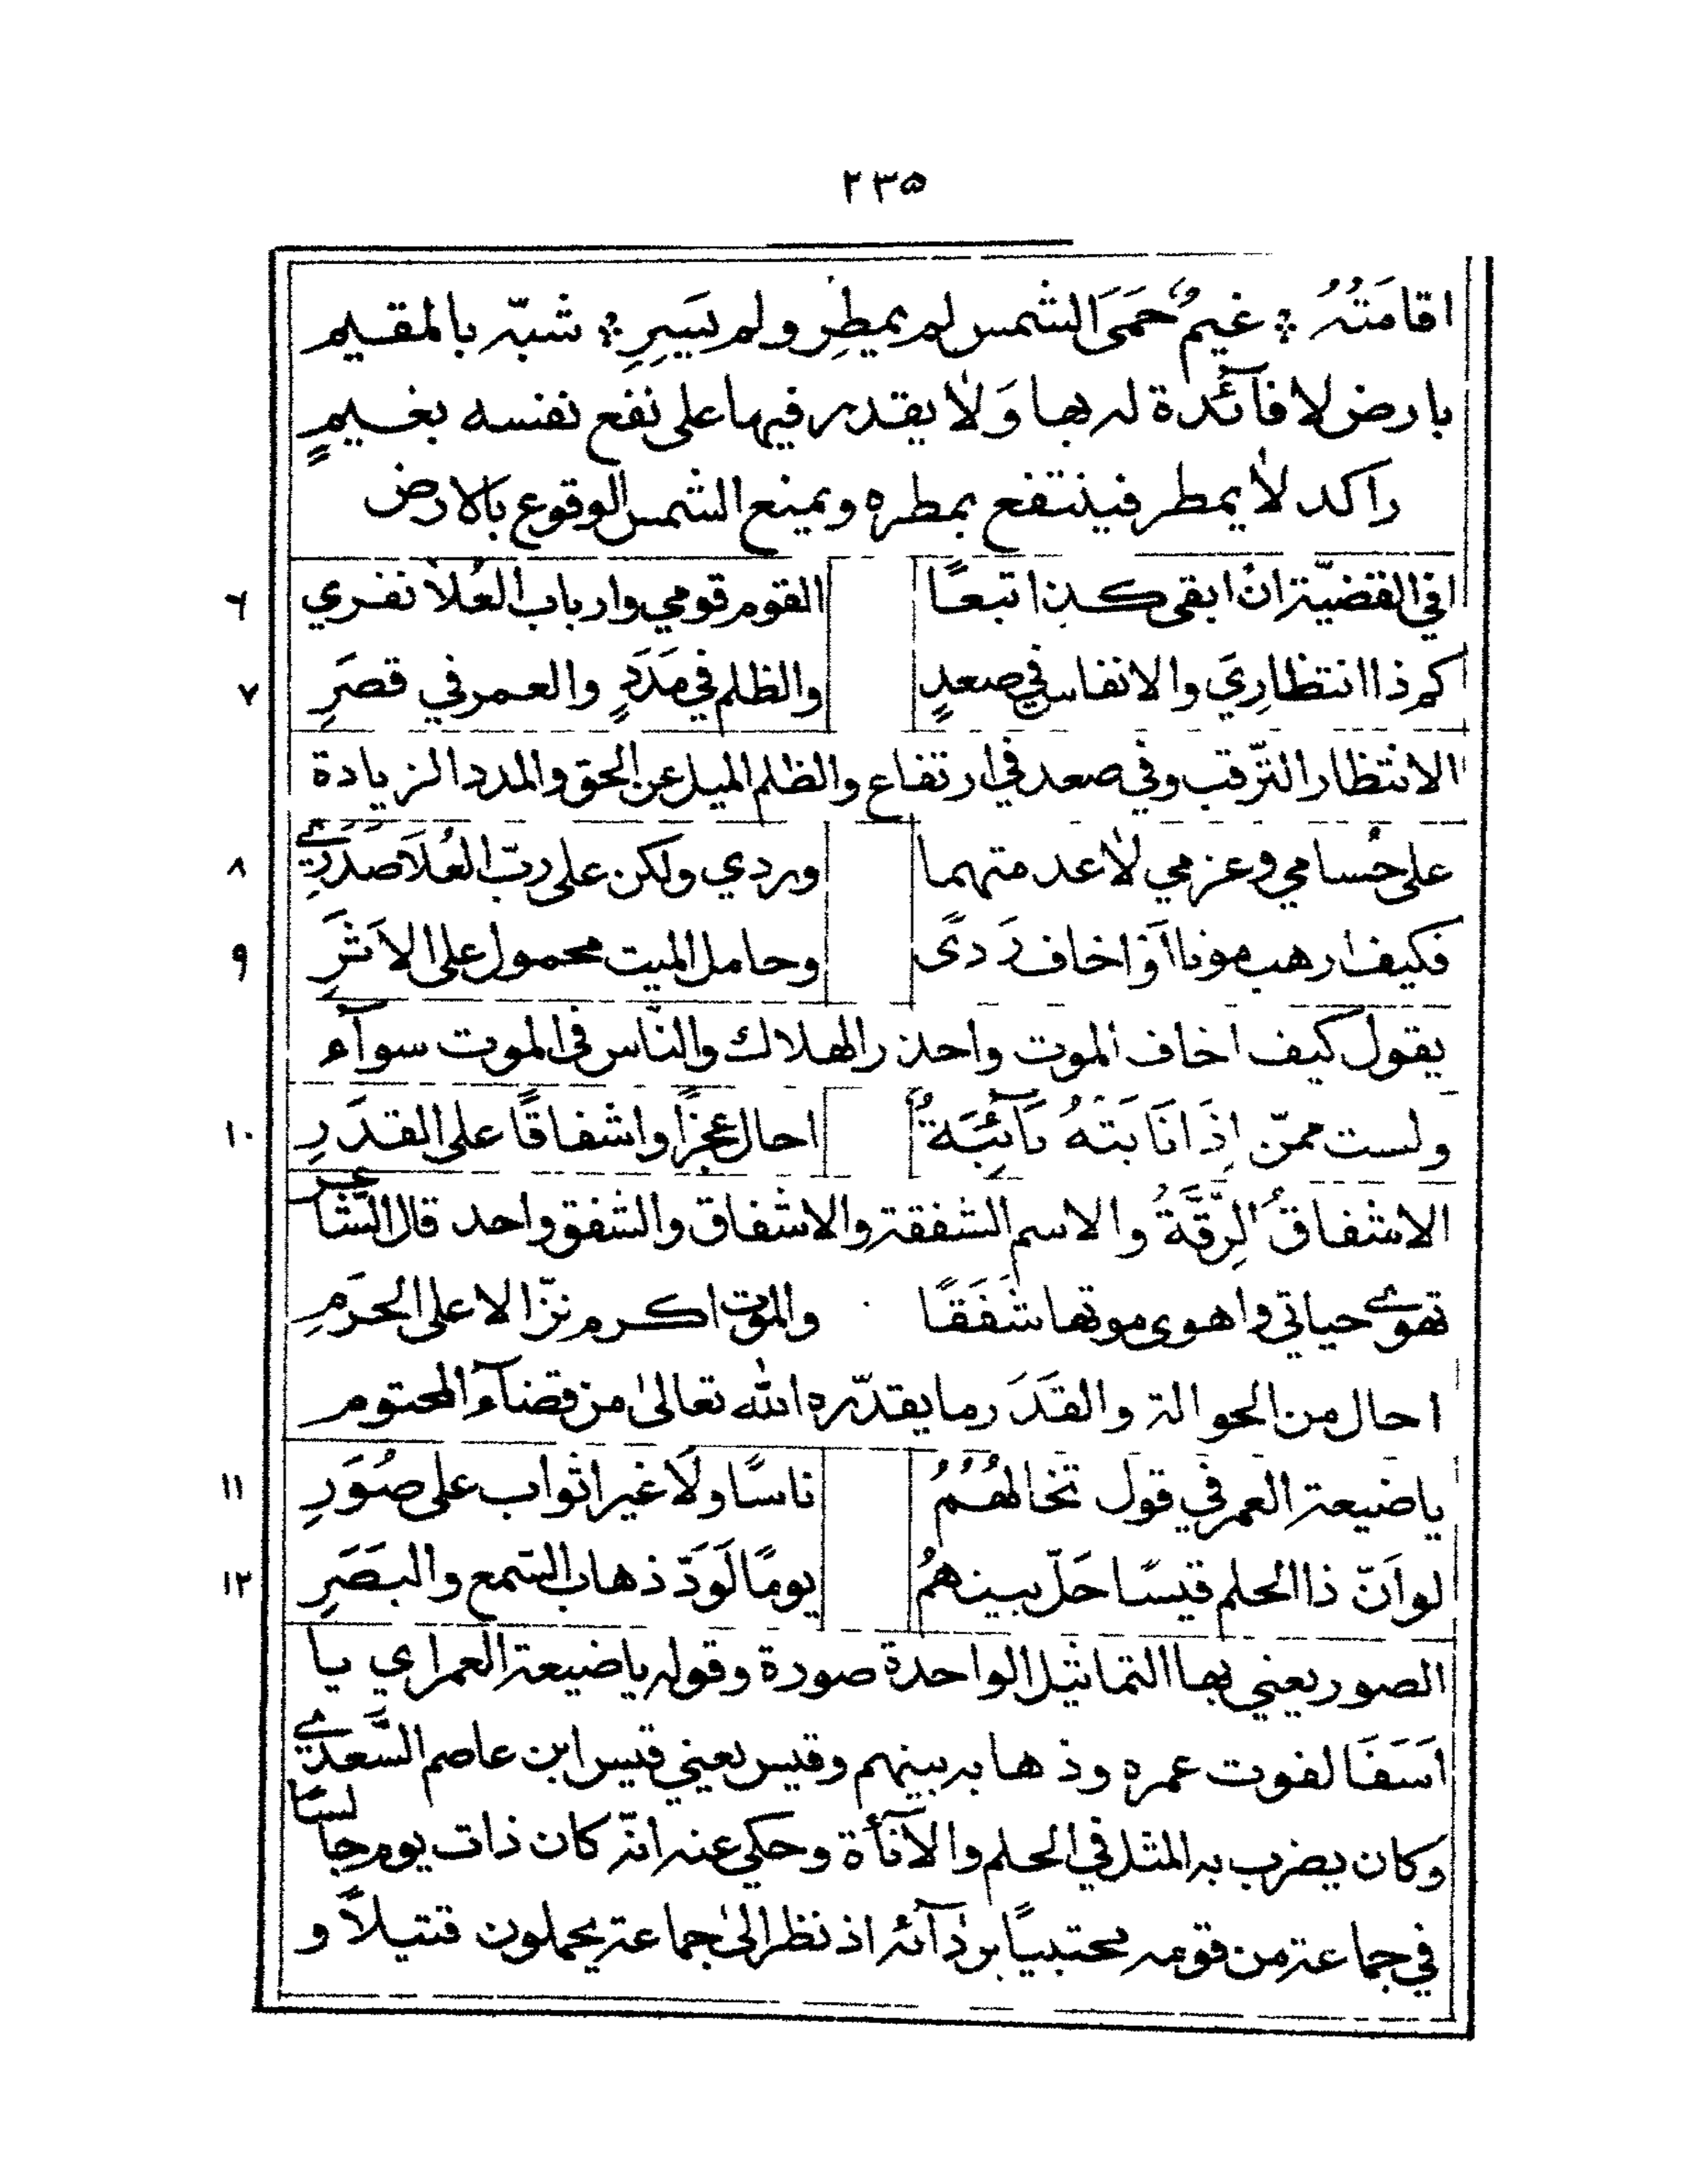 ٢٣۵
اقامَتُهُ ⁂ غيمٌ حَمَى الشمس لم يمطِر ولم يَسِرِ ⁂ شبّه بالمقيم
بارض لا فآئدة له بها وَلا يقدر فيها على نفع نفسه بغيمٍ
راكد لا يمطر فينتفع بمطره ويمنع الشمس الوقوع بالارض
افي القضيّة ان ابقى كذا تبعًا القوم قومي وارباب العُلا نفري ٦
كم ذا انتظارِيَ والانفاس في صعدٍ والظلم في مَدَدٍ والعمر في قصَرِ ٧
الانتظار الترّقب وفي صعد في ارتفاع والظلم الميل عن الحق والمدد الزيادة
على حُسامي وعزمي لا عدمتهما وردي ولكن على ربّ العُلاَ صَدَرِي ٨
فكيف ارهب موتا اَوْ اخاف رَدىً وحامل الميت محمول على الاَثرِ ٩
يقول كيف اخاف الموت واحذر الهلاك والنّاس في الموت سوآء
ولست ممّن اِذَا نَابَتْهُ نَآئِبَةٌ احال عجزًا واشفاقًا على القدَرِ ١٠
الاشفاقُ الرِّقَّةُ والاسم الشفقة والاشفاق والشفق واحد قال الشَّاعر
تهوى حياتي واهوى موتها شَفَقًا والموت اكرم نزّال على الحرَمِ
احال من الحوالة والقَدَر ما يقدّره الله تعالىٰ من قضآء المحتوم
يا ضيعة العمر في قول تخالهُمُ ناسًا ولَا غير اثواب على صُوَرِ ١١
لو اَنّ ذا الحلم قيسًا حَلّ بينهمُ يومًا لَوَدّ ذهاب السّمع والبَصَرِ ١٢
الصور يعني بها التماثيل الواحدة صورة وقوله يا ضيعة العمر اي يا
اَسَفَا لفوت عمره وذهابه بينهم وقيس يعني قيس ابن عاصم السَّعدي
وكان يضرب به المثل في الحلم والاَنأة وحكي عنه انّه كان ذات يوم جالسًا
في جماعة من قومه محتبيًا برداۤئه اذ نظر الىٰ جماعة يحملون قتيلاً و